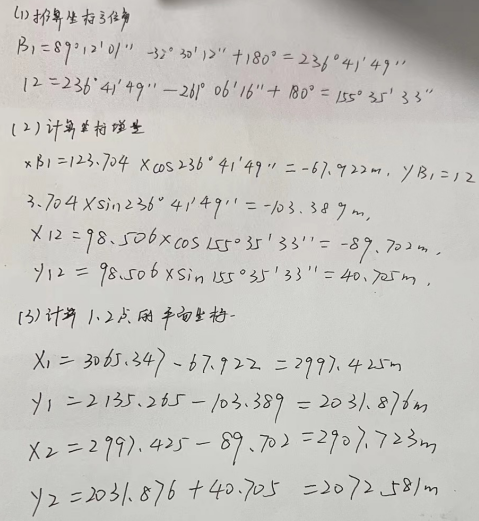 (1) 推算坐标方位角
B1=89°12'01" -32°30'12"+180°=236°41'49"
12=236°41'49"-261°06'16"+180°=155°35'33"
(2) 计算坐标增量
xB1=123.704×cos236°41'49"=-67.922m, yB1=12
3.704×sin236°41'49"=-103.389m,
X12=98.506×cos155°35'33"=-89.702m,
y12=98.506×sin155°35'33"=40.705m,
(3) 计算1.2点的平面坐标.
X1=3065.347-67.922=2997.425m
Y1=2135.265-103.389=2031.876m
X2=2997.425-89.702=2907.723m
Y2=2031.876+40.705=2072.581m